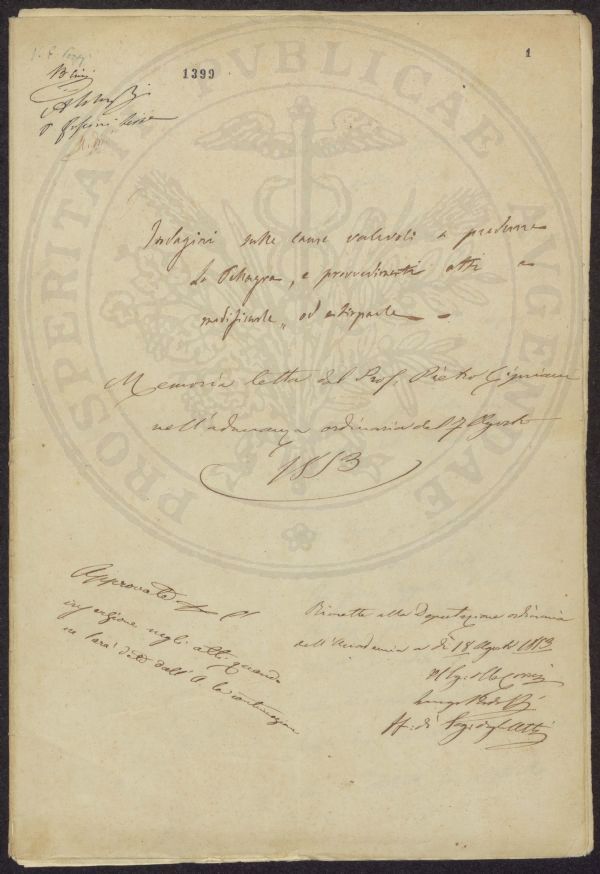 1
1399
PROSPERITATI PVBLICAE AVGENDAE
Indagini sulle cause valevoli a produrre
la Pellagra, e provvedimenti atti a
modificarle, od estirparle
Memoria letta dal Prof. Pietro Cipriani
nell'adunanza ordinaria del 17 Agosto
1853
Approvata
inserzione negli atti quando
ne sarà data dall'A. la continuazione
Rimessa alla Deputazione ordinaria
dell'Accademia a dì 18 Agosto 1853
ff. di Seg. degli Atti